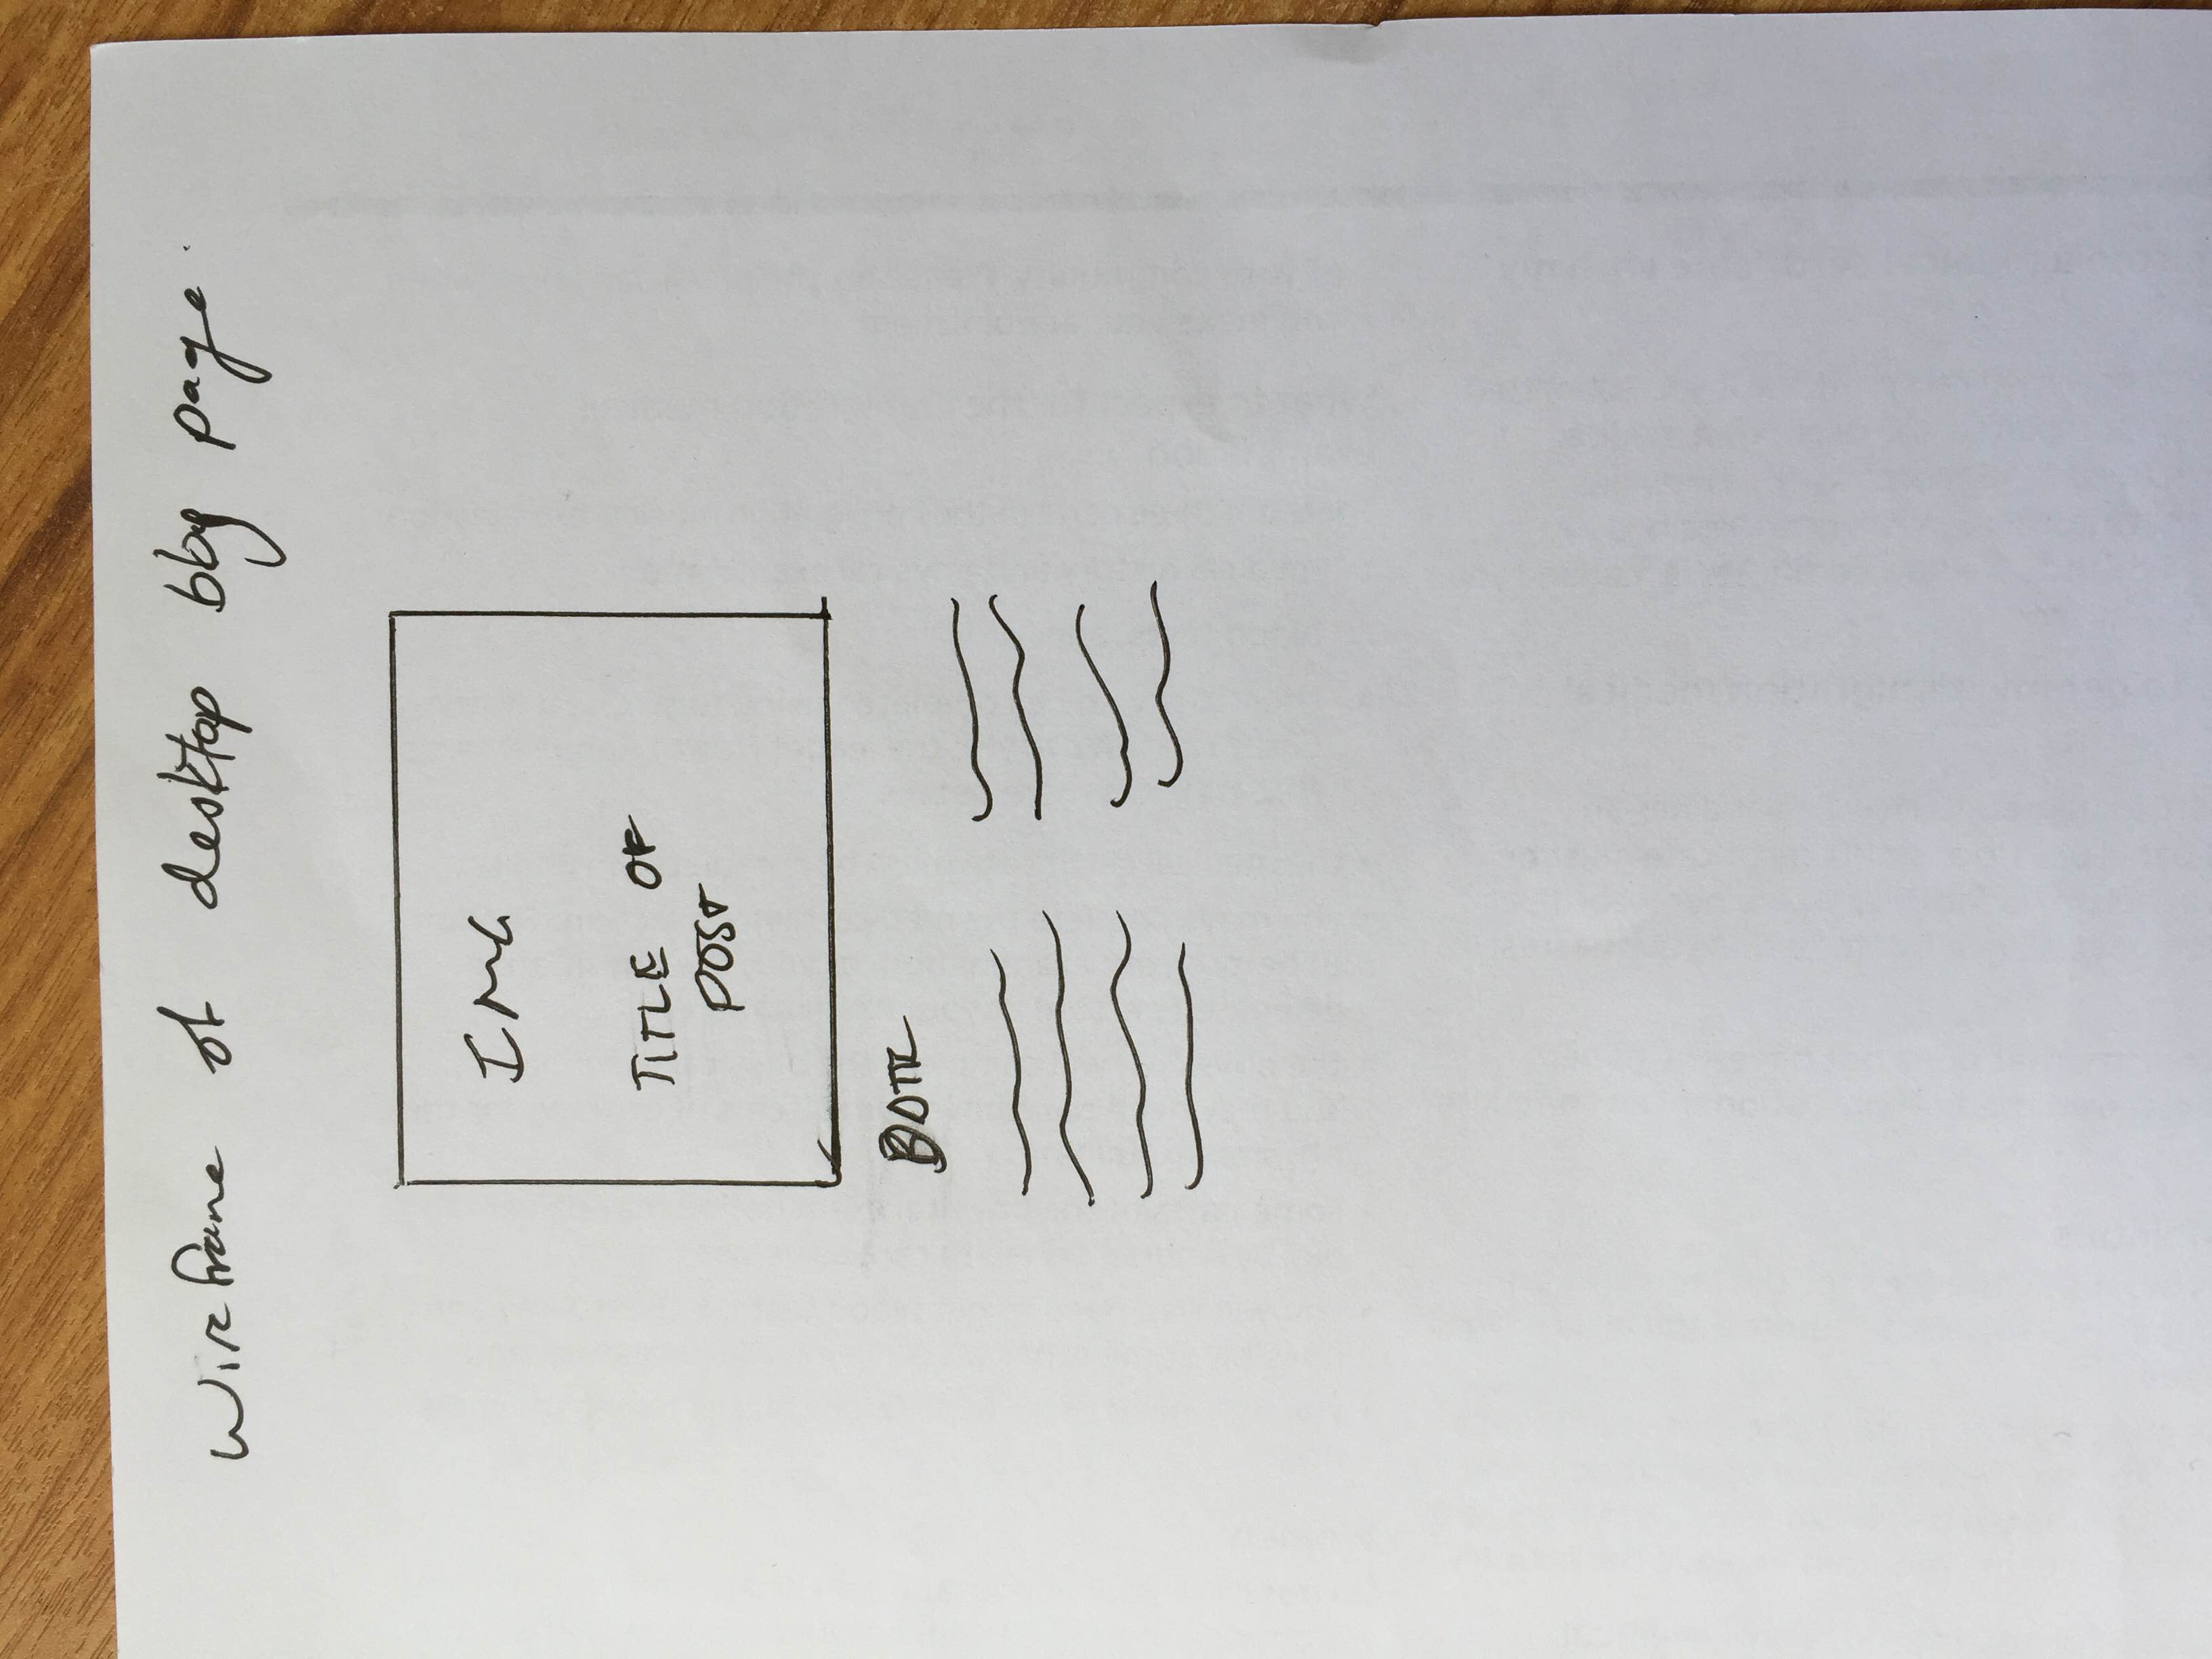 Wireframe of desktop blog page.
IMG
TITLE OF
POST
DATE